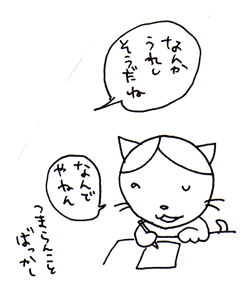 なんか
うれし
そうだね
なんで
やねん
つまらんこと
ばっかし